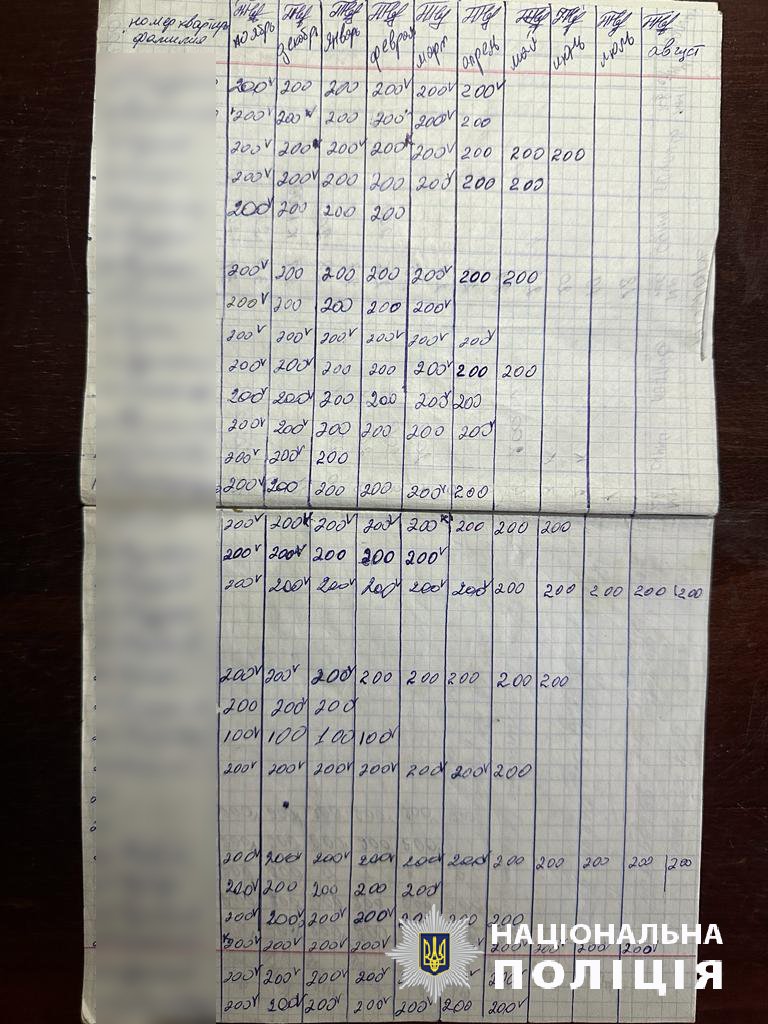 номер квартиры ТКУ ТКУ ТКУ ТКУ ТКУ ТКУ ТКУ ТКУ ТКУ ТКУ
фамилия ноябрь декабрь январь феврал март апрель май июнь июль август
200 200 200 200 200 200
200 200 200 200 200 200
200 200 200 200 200 200 200 200
200 200 200 200 200 200 200
200 200 200 200
200 200 200 200 200 200 200
200 200 200 200 200
200 200 200 200 200 200
200 200 200 200 200 200 200
200 200 200 200 200 200
200 200 200 200 200 200
200 200 200
200 200 200 200 200 200
200 200 200 200 200 200 200 200
200 200 200 200 200
200 200 200 200 200 200 200 200 200 200 200
200 200 200 200 200 200 200 200
200 200 200
100 100 100 100
200 200 200 200 200 200 200
200 200 200 200 200 200 200 200 200 200 200
200 200 200 200 200
200 200 200 200 200 200 200
200 200 200 200 200 200 200 200
200 200 200 200 200
200 200 200 200 200 200 200
НАЦІОНАЛЬНА
ПОЛІЦІЯ